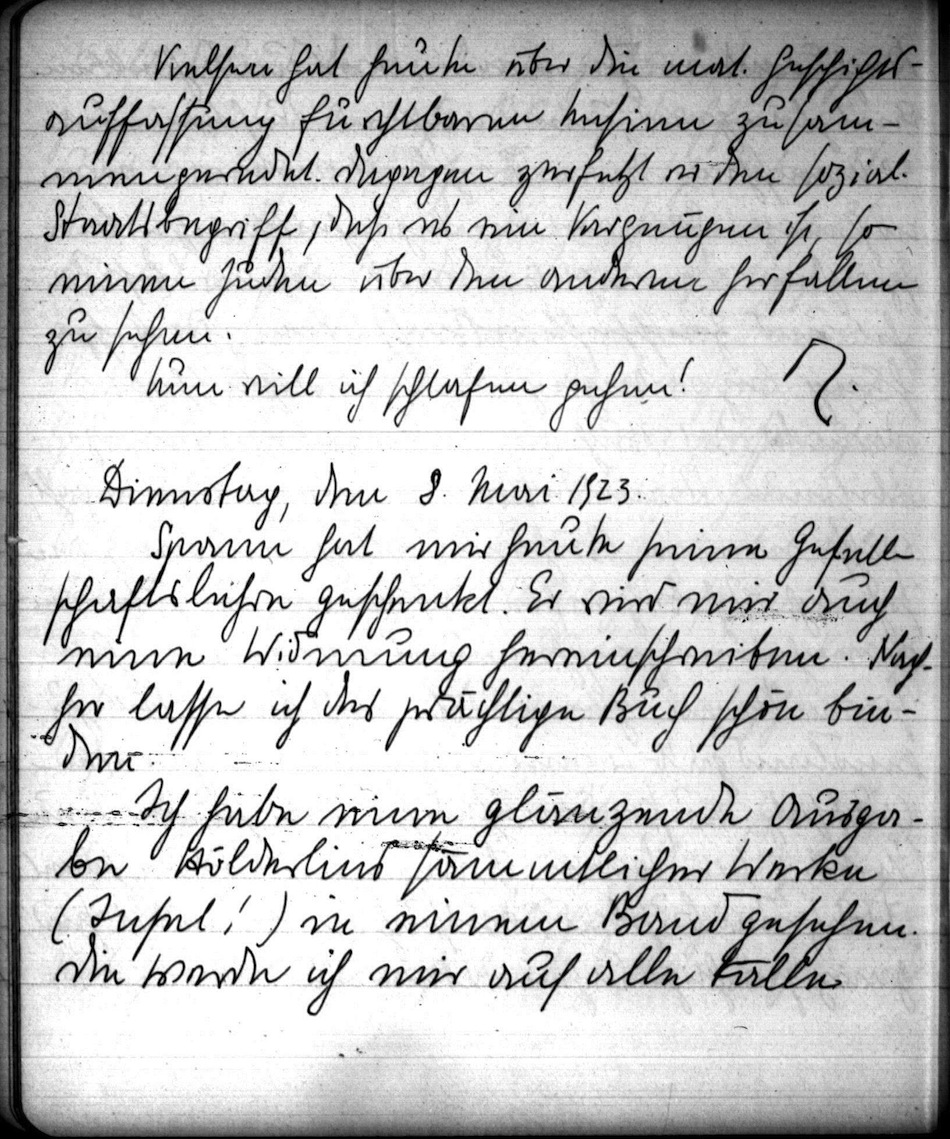 Kelsen hat heute über die mat. Geschichts-
auffassung furchtbaren Unsinn zusam-
mengeredet. Dagegen zerfetzt er den sozial.
Staatsbegriff, dass es ein Vergnügen ist, so
einen Juden über den anderen herfallen
zu sehen.
Nun will ich schlafen gehen!
Dienstag, den 8. Mai 1923.
Spann hat mir heute seine Gesell
schaftslehre geschenkt. Er wird mir auch
eine Widmung hereinschreiben. Nach-
her lasse ich das prächtige Buch schön bin-
den.
Ich habe eine glänzende Ausga-
be Hölderlins sämmtlicher Werke
(Insel!) in einem Band gesehen.
Die werde ich mir auf alle Fälle